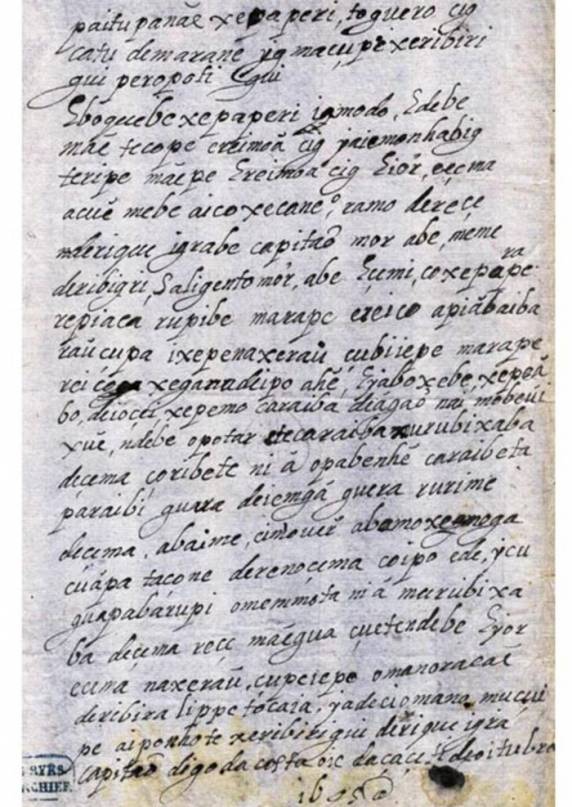 paitupanãe xepaperi, toguero cig
catu demarane yg macupe xeribiri
gui peropoti Egui
Eboquebe xepaperi igmodo, Edebe
mãe tecope ereimoã cig yaiemonhabig
teripe mãepe Ereimboa cig Eior, ecema
acuẽ mebe aico xecane, ramo derece
nderique igrabe capitaõ mor abe, meme
deribigri, Saligento mor, abe Eumi, co xepape ra
repiaca rupibe marape ereico apiãbaiba
raucupa ixepenaxeraũ cubiiepe marape
rei xeganadeipo ahẽ, Ejabo xebe, xepeã
bo, deiocei xepemo caraiba deagaõ nai mobeui
xuẽ, ndebe opotar caraiba urubixaba
decema coribete ni ã opabenhẽ caraibeta
paraibi guara deiemgã guera rurime
decema, abaime, abamo
cuãpa tacone derenocema coipo ede, ycu
guapabarupi omemmota ni ã murubixa
ba decema rece mãegua cuetendebe Eyor
ecema naxeraũ, cupeiepe omanoracaẽ
deribira lippe tocaia, yadeciomano, mucui
pe aiponhote xeribirigui derique igrã
capitaõ digo da costa oie dacaci deoitubro